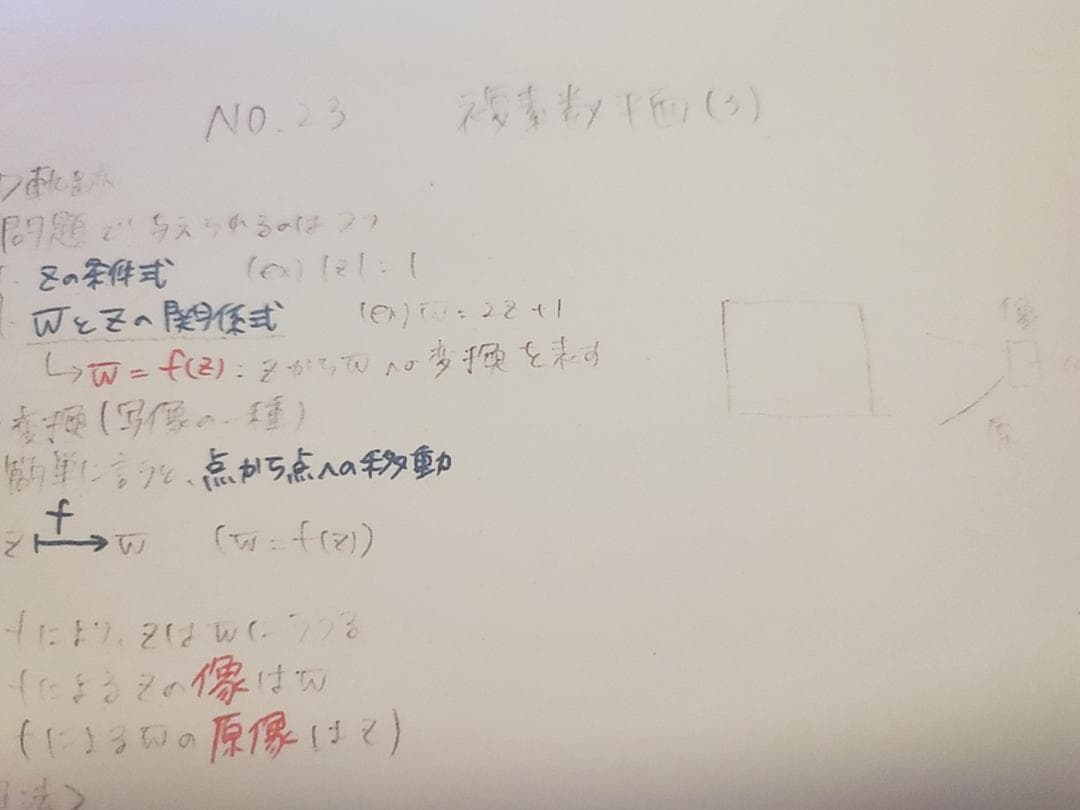 NO.23 複素数平面(3)
軌跡
問題で与えられるのは2つ
zの条件式 (ex) |z|=1
wとzの関係式 (ex) w=2z+1
↳ w=f(z): zからwへの変換を表す
変換(写像の一種)
簡単に言うと、点から点への移動
f
z ↦ w (w=f(z))
fにより、zはwにうつる
fによるzの像はw
(fによるwの原像はz)
像
原